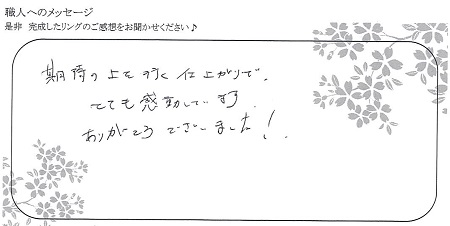 職人へのメッセージ
是非 完成したリングのご感想をお聞かせください♪
期待の上を行く仕上がりで、
とても感動しています。
ありがとうございました!